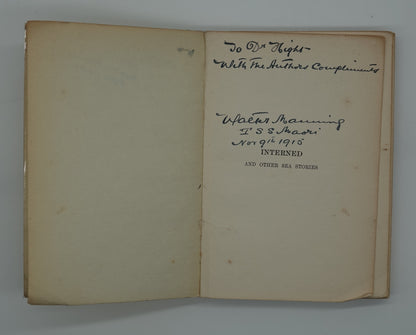 To Dr Hight
With the Authors Compliments
Walter Manning
T S S Maori
Nov 9th 1915
INTERNED
AND OTHER SEA STORIES